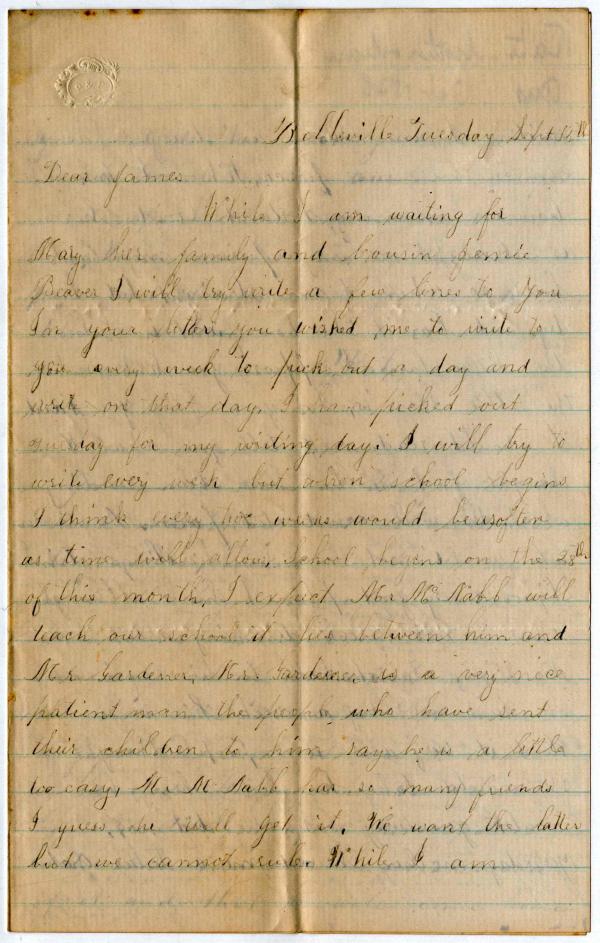 Tuesday Sept
Dear James
While I am waiting for
Mary her family and Cousin Jennie
Beaver I will try write a few lines to You
In your letter you wished me to write to
you every week to pick out a day and
write on that day, I have picked out
Tuesday for my writing day. I will try to
write every week but when school begins
I think every two weeks would be as often
as time will allow, School begins on the 28th
of this month, I expect Mr McNabb will
teach our school it lies between him and
Mr Gardener, Mr Gardener, is a very nice
patient man the people, who have sent
their children to him say he is a little
too easy, Mr McNabb has so many friends
I guess he will get it. We want the latter
but we cannot rule. While I am